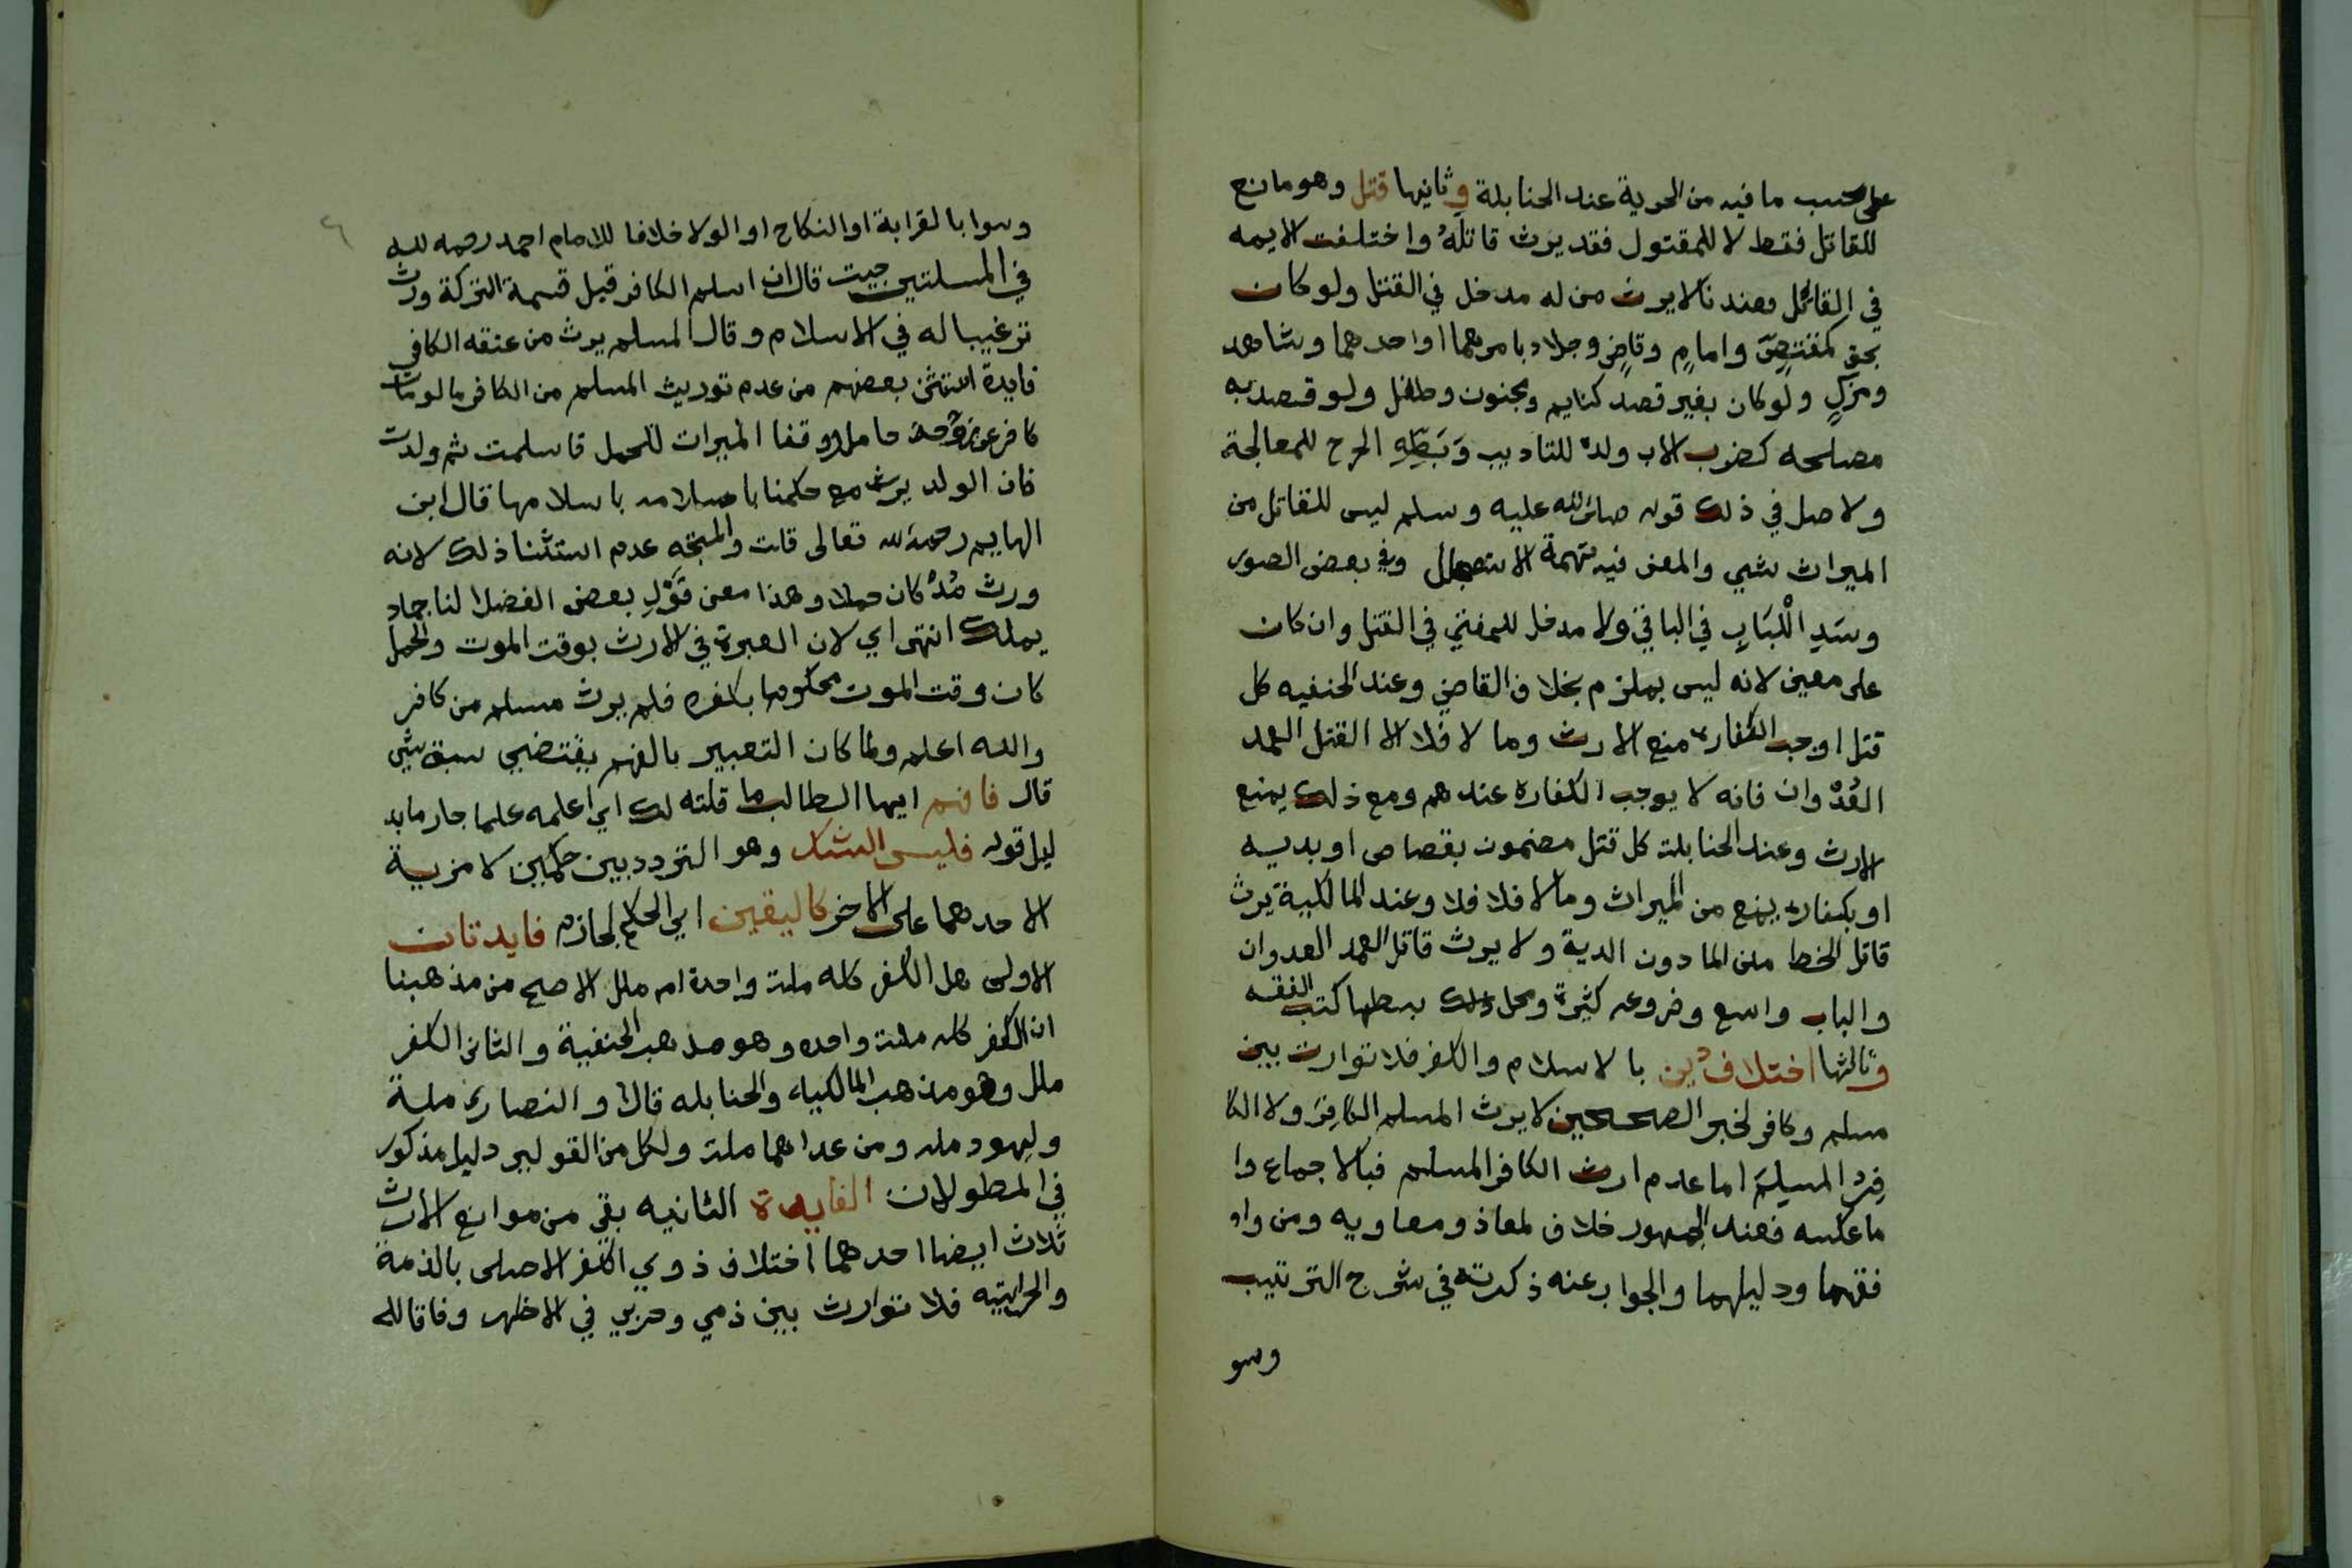 على حسب ما فيه من الحرية عند الحنابلة وثانيها قتل وهو مانع
للقاتل فقط لا للمقتول فقد يرث قاتلهُ واختلفت الايمه
في القاتل فعندنا لا يرث من له مدخل في القتل ولو كان
بحق كمقتصٍ وامامٍ وقاضٍ وجلاد بامرهما او احدهما وشاهد
ومزكٍ ولو كان بغير قصد كنايم ومجنون وطفل ولو قصد به
مصلحه كضرب الاب ولدهُ للتاديب وَبَطِّهِ الجرح للمعالجة
ولاصل في ذلك قوله صلى الله عليه وسلم ليس للقاتل من
الميراث شي والمعنى فيه تهمة الاستعجال وفي بعض الصور
وسَدِ الْبَابِ في الباقي ولا مدخل للمفتي في القتل وان كان
على معين لانه ليس بملزم بخلاف القاضي وعند الحنفيه كل
قتل اوجب الكفارة منع الارث وما لا فلا الا القتل العمد
العُدْوان فانه لا يوجب الكفارة عندهم ومع ذلك يمنع
الارث وعند الحنابلت كل قتل مضمون بقصاص او بديه
او بكفارة يمنع من الميراث وما لا فلا فلا وعند المالكية يرث
قاتل الخطا من المادون الدية ولا يرث قاتل العمد العدوان
والباب واسع وفروعه كثيرة ومحل ذلك بسطها كتب الفقه
وثالثها اختلاف دين بالاسلام والكفر فلا توارث بين
مسلم وكافر لخبر الصحيحين لا يرث المسلم الكافِرَ ولا الكا
فِرُ المسلِمَ اما عدم ارث الكافر المسلم فبالاجماع وا
ما عكسه فعند الجمهور خلاف لمعاذ ومعاويه ومن وا
فقهما ودليلهما والجواب عنه ذكرته في شرح الترتيب
وسو
وسوا بالقرابة او النكاح او الولا خلافا للامام احمد رحمه لله
في المسلتين حيت قال ان اسلم الكافر قبل قسمة التركة ورث
ترغيبا له في الاسلام وقال المسلم يرث من عتقه الكافر
فايدة استثنى بعضهم من عدم توريث المسلم من الكافر ما لو مات
كافر عن زوجة حاملا ووقفا الميراث للحمل فاسلمت ثم ولدت
فان الولد يرث مع حكمنا باسلامه باسلامها قال ابن
الهايم رحمه لله تعالى قلت والمتجه عدم استثنا ذلك لانه
ورث مُذْ كان حملا وهذا معنى قَوْلِ بعض الفضلا لنا جماد
يملك انتهى اي لان العبرة في الارث بوقت الموت والحمل
كان وقت الموت محكوما بكفره فلم يرث مسلم من كافر
والله اعلم ولما كان التعبير بالفهم يقتضي سبق شي
قال فافهم ايها الطالب ما قلته لك اي اعلمه علما جار ما بد
ليل قوله فليس الشك وهو التردد بين حكمين لا مزية
لاحدهما على الاخر كاليقين اي الحكم لجازم فايدتان
الاولى هل الكفر كله ملت واحدة ام ملل الاصح من مذهبنا
ان الكفر كله ملت واحده وهو مذهب الحنفية والثاني الكفر
ملل وهو مذهب المالكياء والحنابله قال والنصارى ملة
وليهود مله ومن عداهما ملت ولكل من القولين دليل مذكور
في المطولات الفايدة الثانيه بقي من موانع الارث
ثلاث ايضا احدهما اختلاف ذوي الكفر الاصلى بالذمة
والحرابيه فلا توارث بين ذمي وحربي في الاظهر وفاقا لل